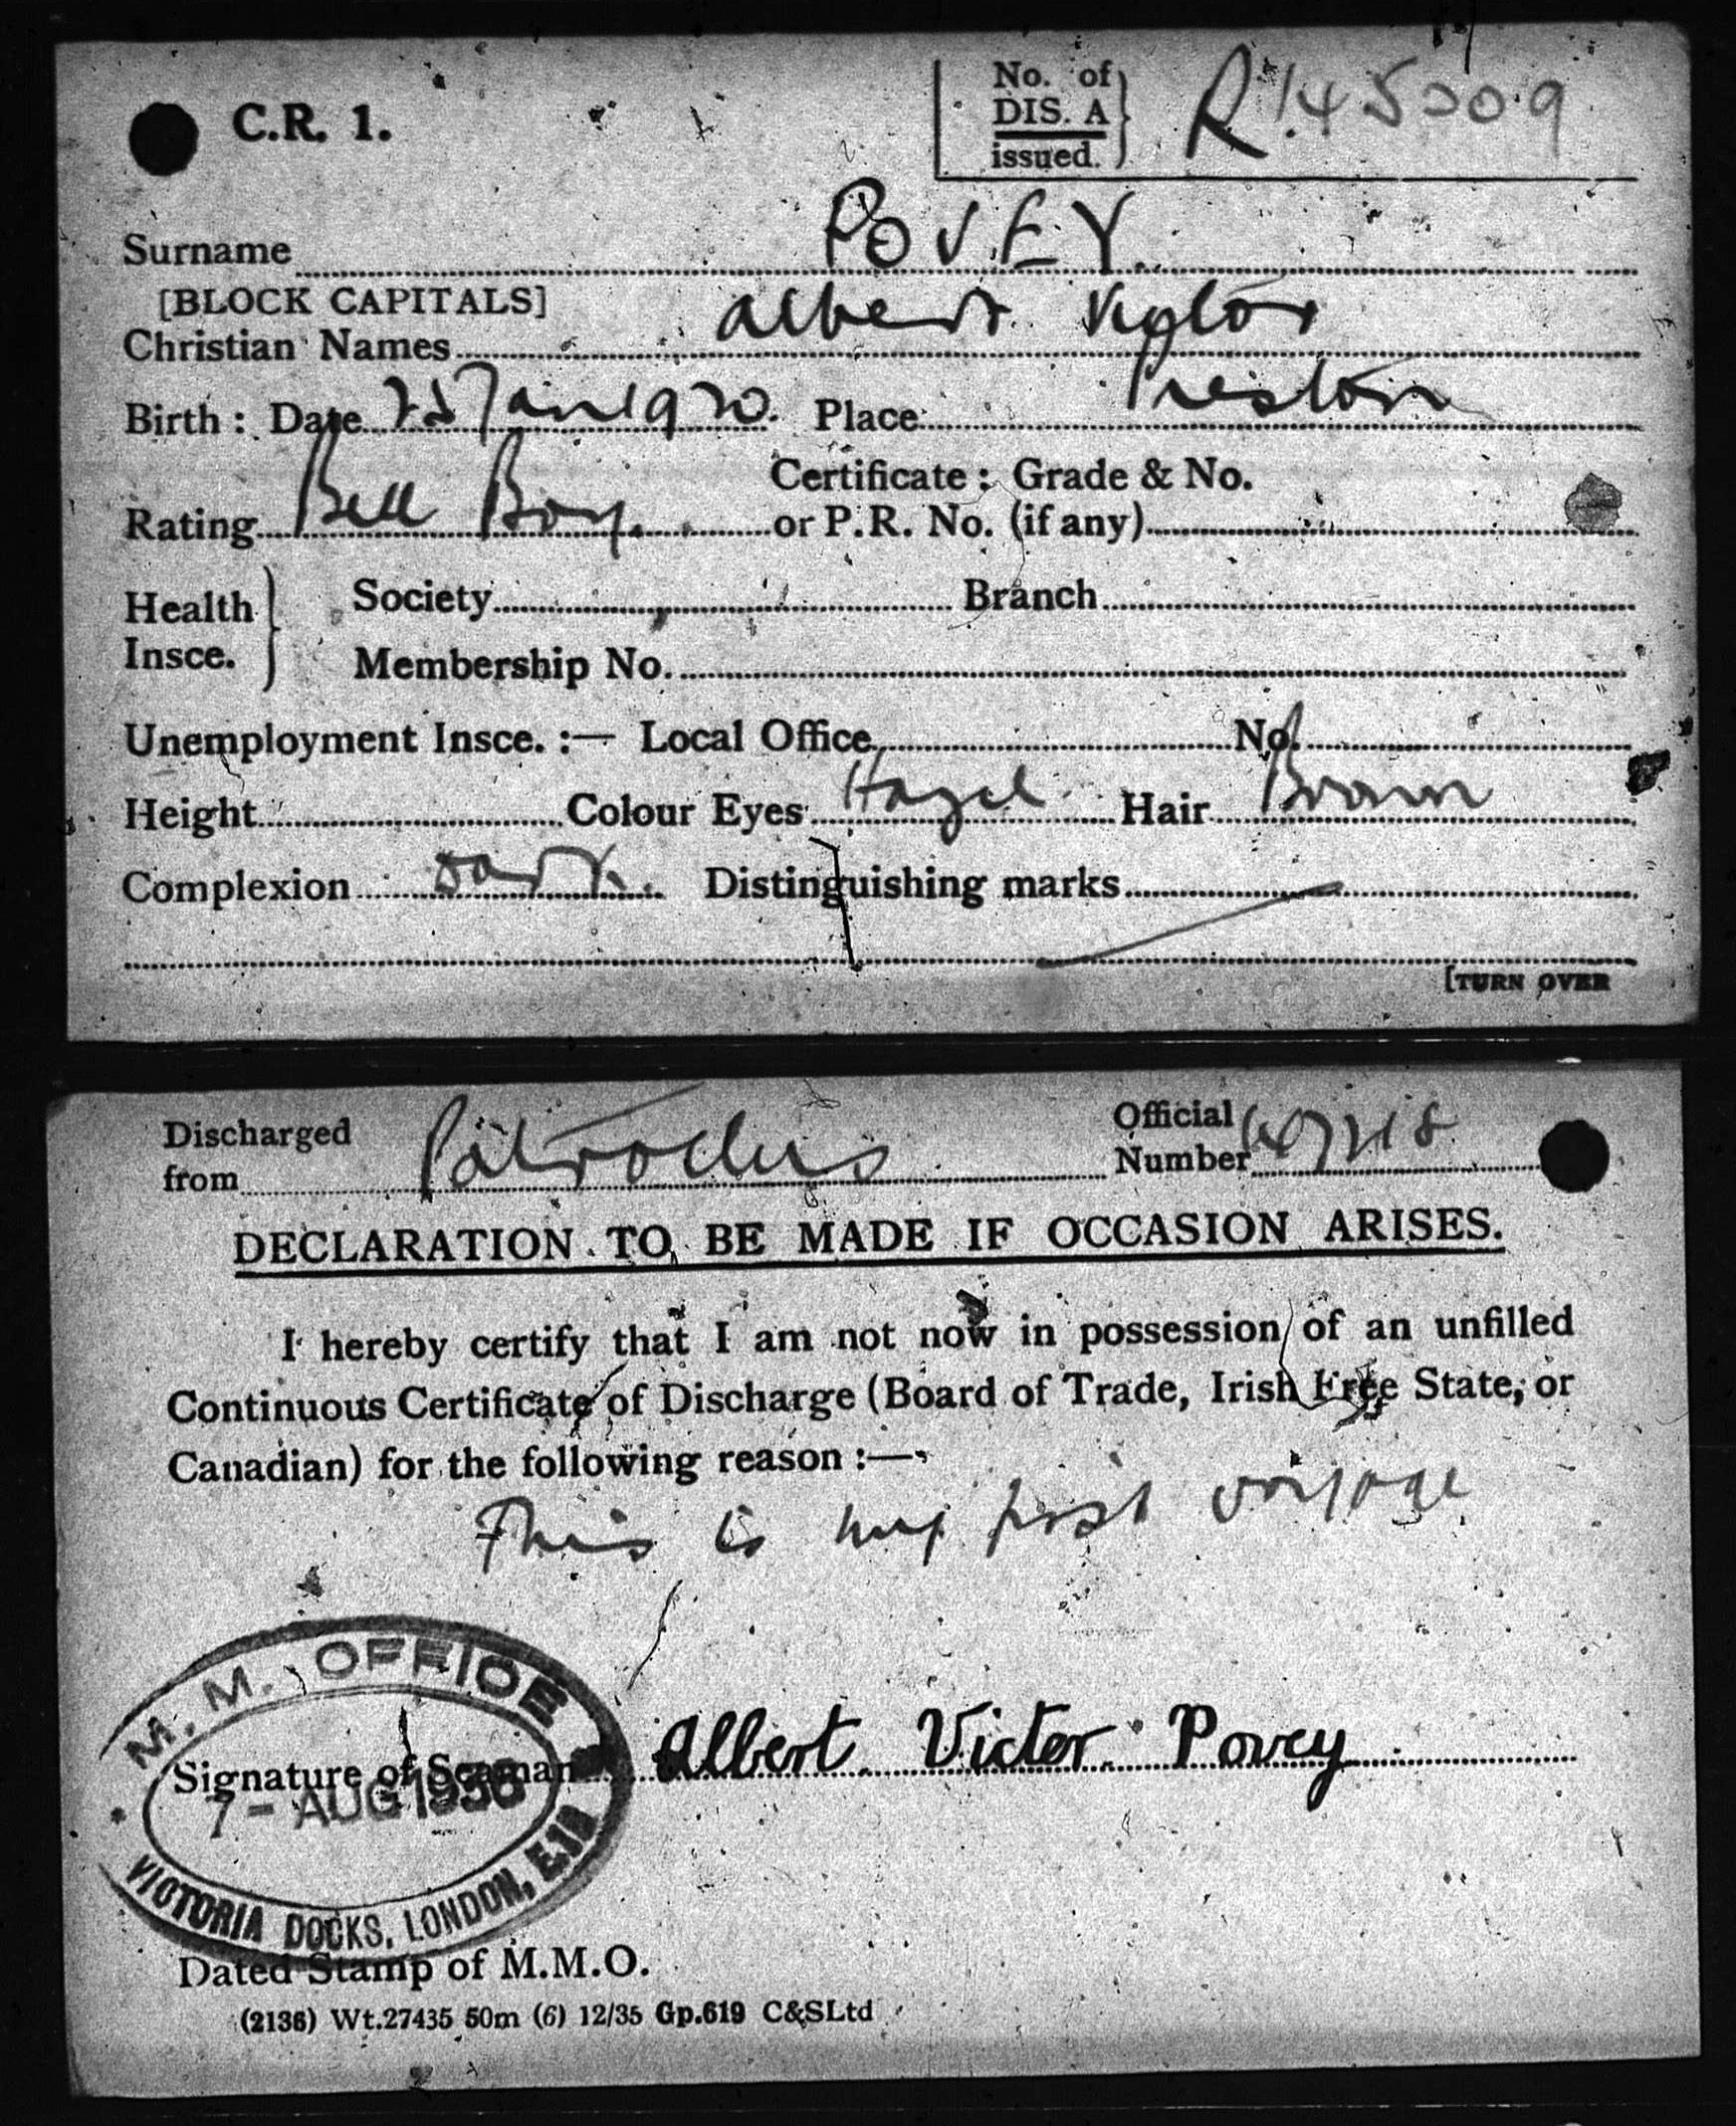 C.R. 1.
No. of
DIS. A
issued.
R 145209
Surname POVEY
[BLOCK CAPITALS]
Christian Names Albert Victor
Birth: Date Jan 1920. Place Preston
Rating Bell Boy. Certificate: Grade & No.
or P.R. No. (if any)
Health
Insce.
Society Branch
Membership No.
Unemployment Insce. :— Local Office No.
Height Colour Eyes Hazel Hair Brown
Complexion Dark. Distinguishing marks
[TURN OVER
Discharged
from Patroclus
Official
Number 147218
DECLARATION TO BE MADE IF OCCASION ARISES.
I hereby certify that I am not now in possession of an unfilled
Continuous Certificate of Discharge (Board of Trade, Irish Free State, or
Canadian) for the following reason :—
This is my first voyage
M. M. OFFICE
Signature of Seaman Albert Victor Povey
7 - AUG 1936
VICTORIA DOCKS, LONDON, E.16
Dated Stamp of M.M.O.
(2136) Wt.27435 50m (6) 12/35 Gp.619 C&SLtd